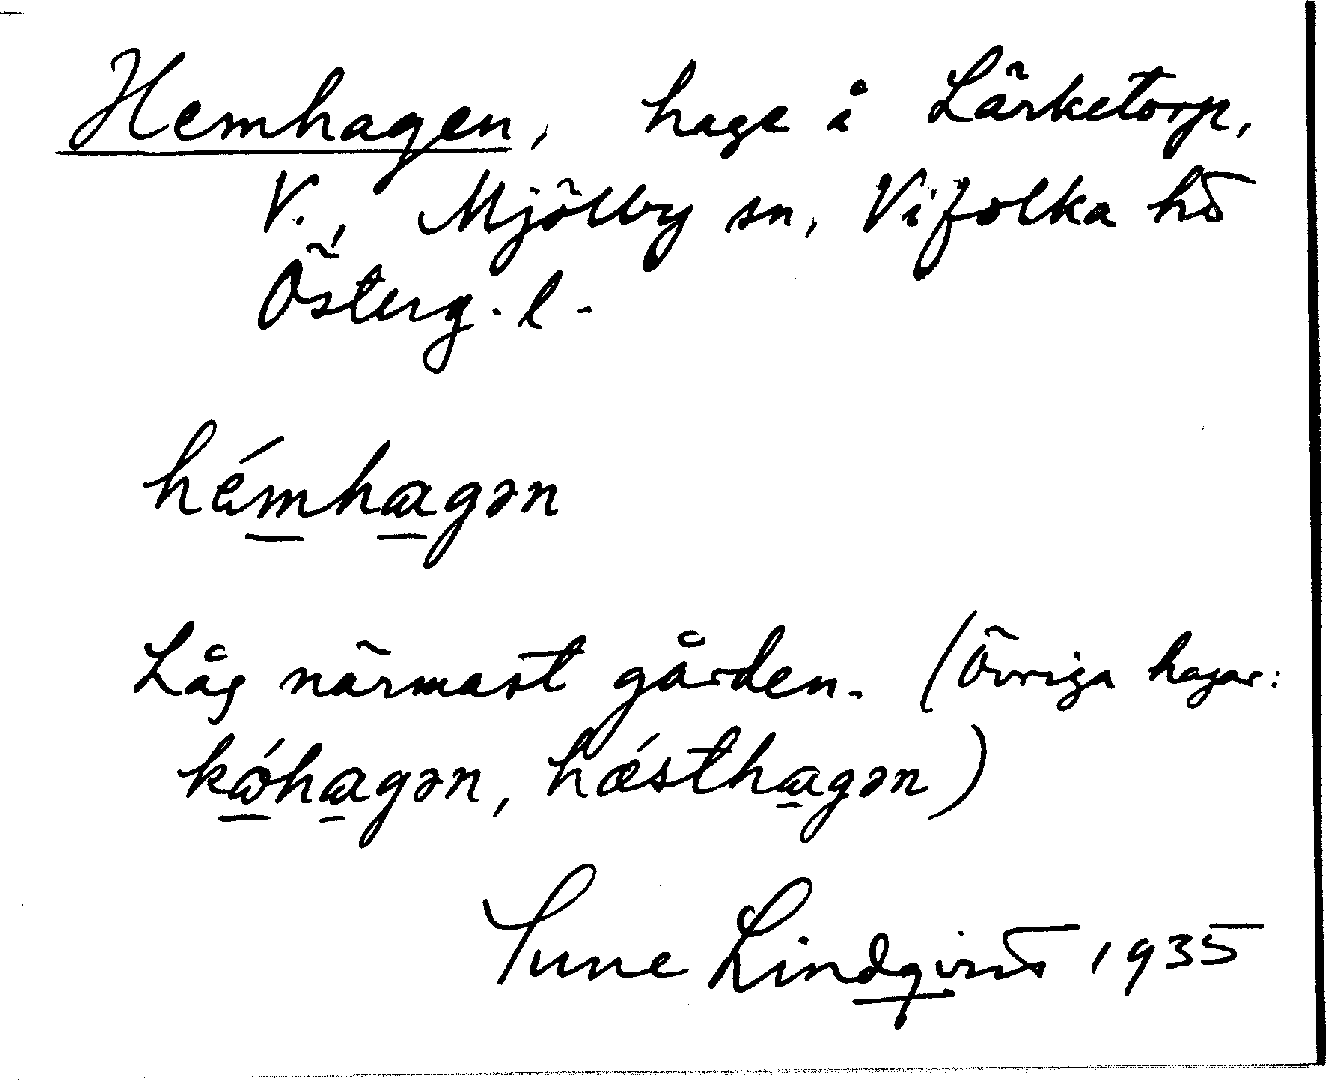 Hemhagen, hage å Lärketorp,
V., Mjölby sn, Vifolka hd
Österg. l.
hémhagən
Låg närmast gården. (Övriga hagar:
kóhagən, hǽsthagən)
Sune Lindqvist 1935